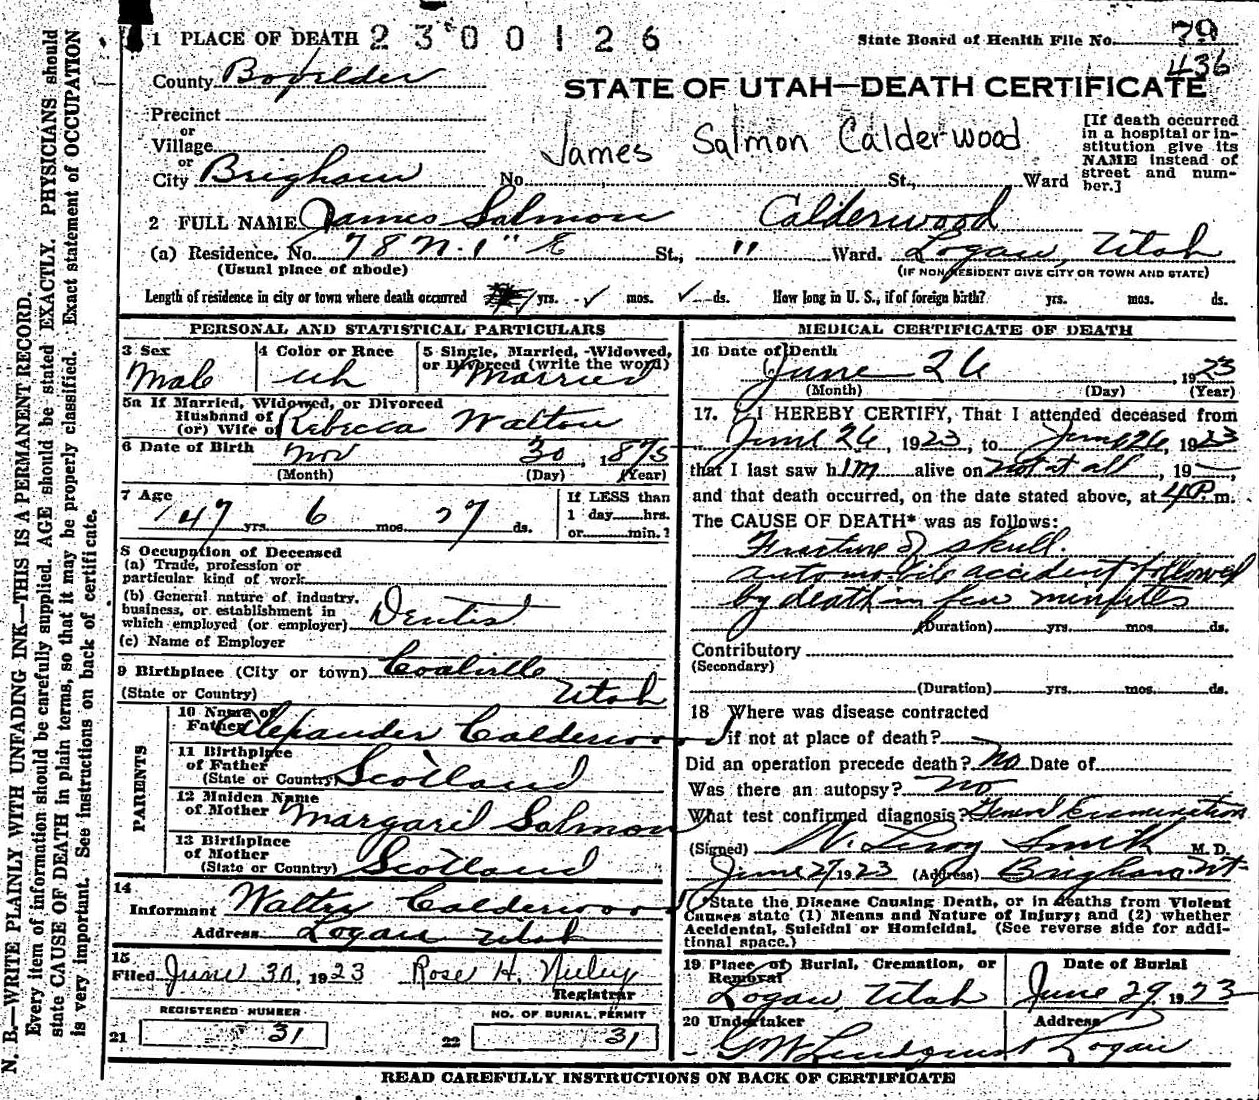 1 PLACE OF DEATH 2300126
State Board of Health File No. 79
436
County Boxelder
STATE OF UTAH—DEATH CERTIFICATE
Precinct
or
Village
or
City Brigham No. St., Ward
James Salmon Calderwood
[If death occurred in a hospital or institution give its NAME instead of street and number.]
2 FULL NAME James Salmon Calderwood
(a) Residence. No. 78 N. 1" E St., " Ward. Logan, Utah
(Usual place of abode) (IF NON RESIDENT GIVE CITY OR TOWN AND STATE)
Length of residence in city or town where death occurred yrs. mos. ds. How long in U. S., if of foreign birth? yrs. mos. ds.
PERSONAL AND STATISTICAL PARTICULARS
3 Sex
Male
4 Color or Race
wh
5 Single, Married, Widowed, or Divorced (write the word)
Married
5a If Married, Widowed, or Divorced
Husband of
(or) Wife of Rebecca Walton
6 Date of Birth Nov 30, 1875
(Month) (Day) (Year)
7 Age
47 yrs. 6 mos. 27 ds.
If LESS than
1 day hrs.
or min.?
8 Occupation of Deceased
(a) Trade, profession or
particular kind of work
(b) General nature of industry,
business, or establishment in
which employed (or employer) Dentist
(c) Name of Employer
9 Birthplace (City or town) Coalville
(State or Country) Utah
PARENTS
10 Name of
Father Alexander Calderwood
11 Birthplace
of Father
(State or Country) Scotland
12 Maiden Name
of Mother Margaret Salmon
13 Birthplace
of Mother
(State or Country) Scotland
14
Informant Walter Calderwood
Address Logan Utah
15
Filed June 30, 1923 Rose H. Neeley
Registrar
REGISTERED NUMBER
21 31
NO. OF BURIAL PERMIT
22 31
MEDICAL CERTIFICATE OF DEATH
16 Date of Death
June 26, 1923
(Month) (Day) (Year)
17. I HEREBY CERTIFY, That I attended deceased from
June 26, 1923, to June 26, 1923
that I last saw him alive on not at all, 19—,
and that death occurred, on the date stated above, at 4 P. m.
The CAUSE OF DEATH* was as follows:
Fracture of skull.
automobile accident followed
by death in few minutes
(Duration) yrs. mos. ds.
Contributory
(Secondary)
(Duration) yrs. mos. ds.
18 Where was disease contracted
if not at place of death?
Did an operation precede death? no Date of
Was there an autopsy? no
What test confirmed diagnosis? General Examination
(Signed) W. Leroy Smith M. D.
June 27, 1923 (Address) Brigham Ut.
*State the Disease Causing Death, or in deaths from Violent
Causes state (1) Means and Nature of Injury; and (2) whether
Accidental, Suicidal or Homicidal. (See reverse side for addi-
tional space.)
19 Place of Burial, Cremation, or
Removal
Logan, Utah
Date of Burial
June 29, 1923
20 Undertaker
G W Lindquist
Address
Logan
READ CAREFULLY INSTRUCTIONS ON BACK OF CERTIFICATE
N. B.—WRITE PLAINLY WITH UNFADING INK—THIS IS A PERMANENT RECORD.
Every item of information should be carefully supplied. AGE should be stated EXACTLY. PHYSICIANS should
state CAUSE OF DEATH in plain terms, so that it may be properly classified. Exact statement of OCCUPATION
is very important. See instructions on back of certificate.